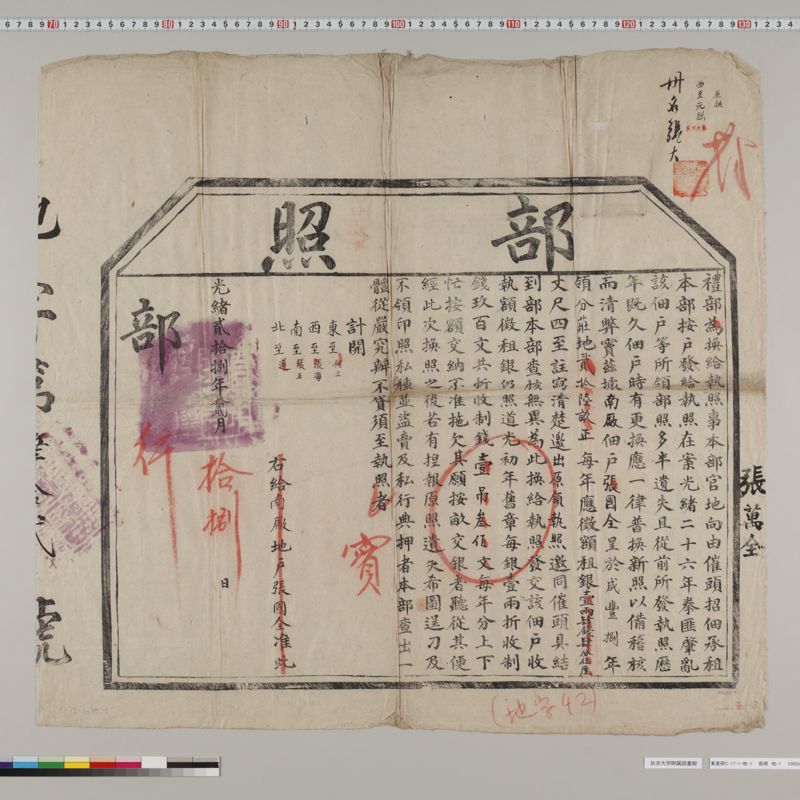 部照
禮部為換給執照事本部官地向由催頭招佃承租
本部按戶發給執照在案光緒二十六年拳匪肇亂
該佃戶等所領部照多半遺失且從前所發執照歷
年既久佃戶時有更換應一律普換新照以備稽核
而清弊竇茲據南廠佃戶張國全呈於咸豐捌年
領分莊地貳拾陸畝正每年應徵額租銀壹兩肆錢肆分伍厘
丈尺四至註寫清楚邀出原領執照邀同催頭具結
到部本部查核無異為此換給執照發交該佃戶收
執額徵租銀仍照道光初年舊章每銀壹兩折收制
錢玖百文共折收制錢壹吊叁佰文每年分上下
忙按額交納不准拖欠其願按畝交銀者聽從其便
經此次換照之後若有捏報原照遺失希圖逞刁及
不領印照私種並盜賣及私行典押者本部查出一
體從嚴究辦不貸須至執照者
計開
東至何三
西至張海
南至張五
北至道
右給南廠地戶張國全准此
光緒貳拾捌年拾貳月
拾捌
日
部
行
實
張萬全
冊名張大
號
(地字42)
筑波大学附属図書館